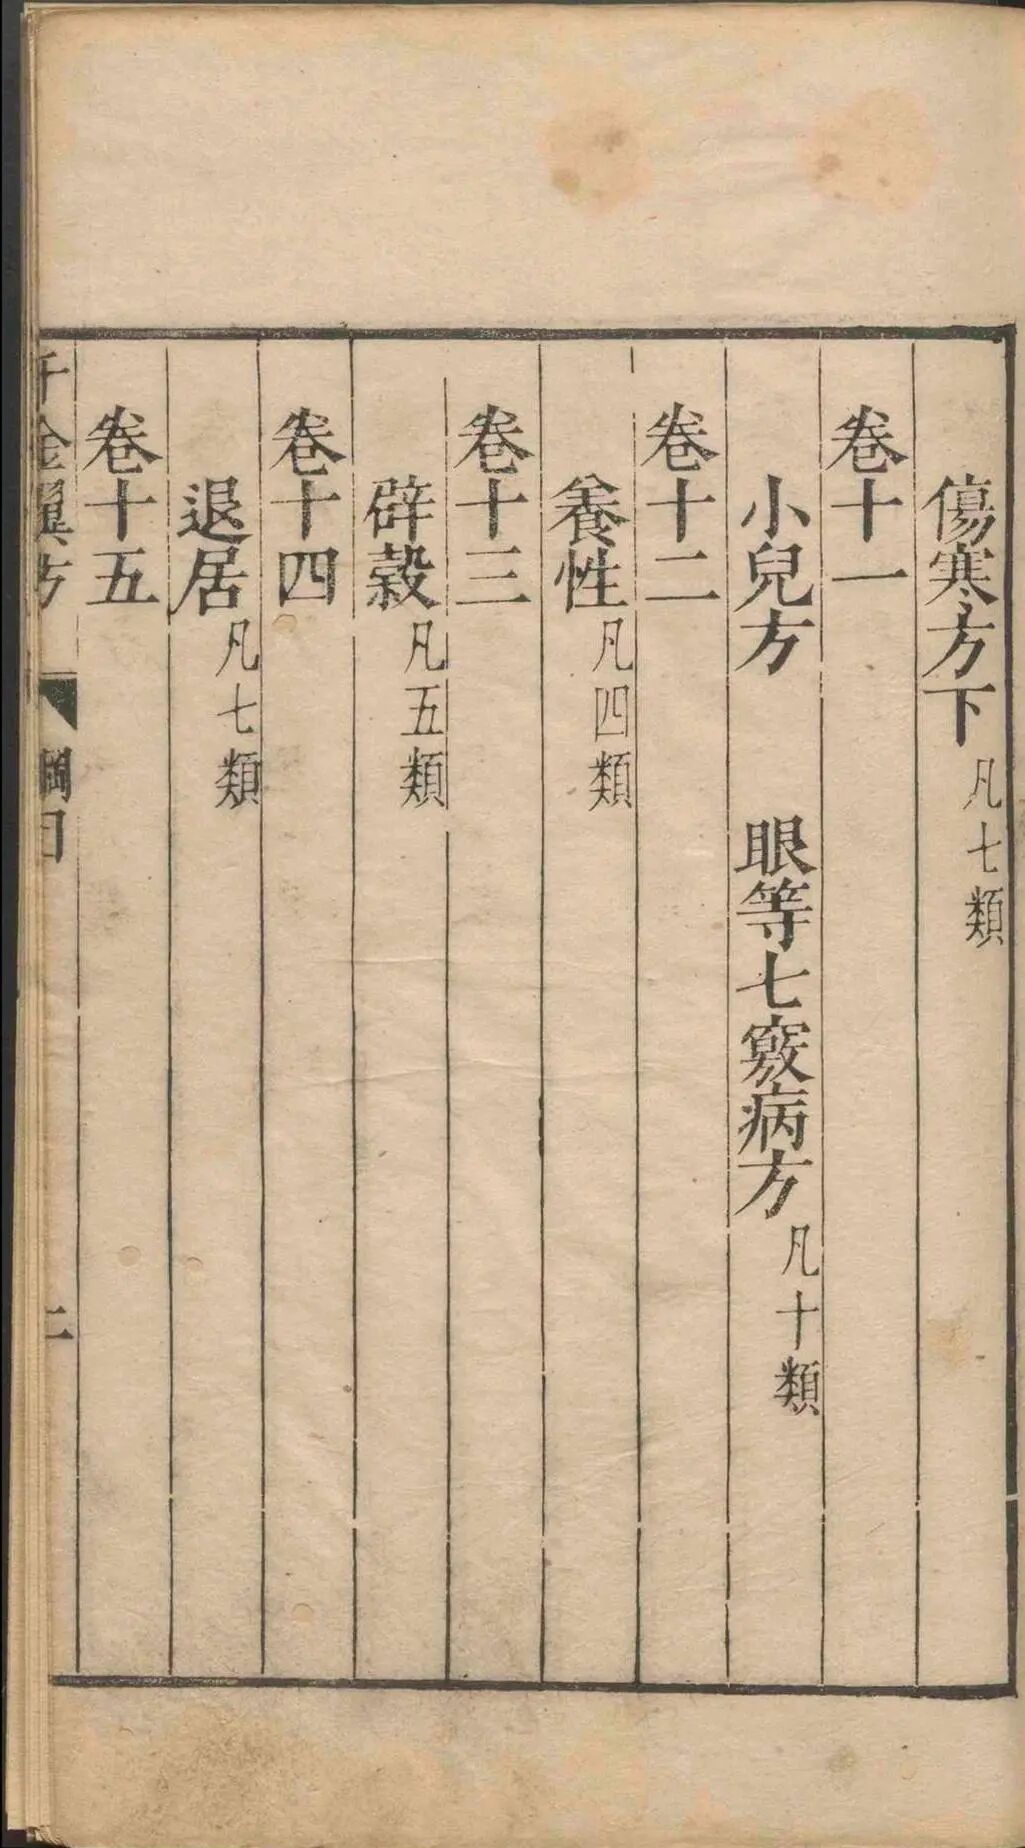 傷寒方下凡七類
卷十一
小兒方 眼等七竅病方凡十類
卷十二
養性凡四類
卷十三
辟穀凡五類
卷十四
退居凡七類
卷十五
千金翼方 綱目 二